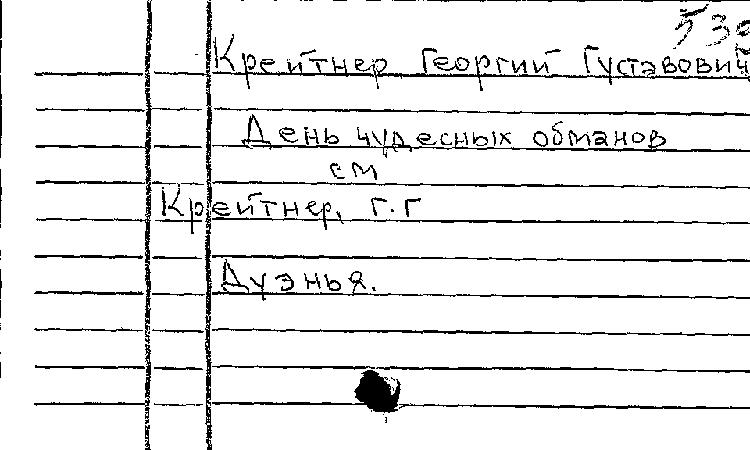 530
Крейтнер Георгий Густавович
День чудесных обманов
см
Крейтнер, Г.Г
Дуэнья.